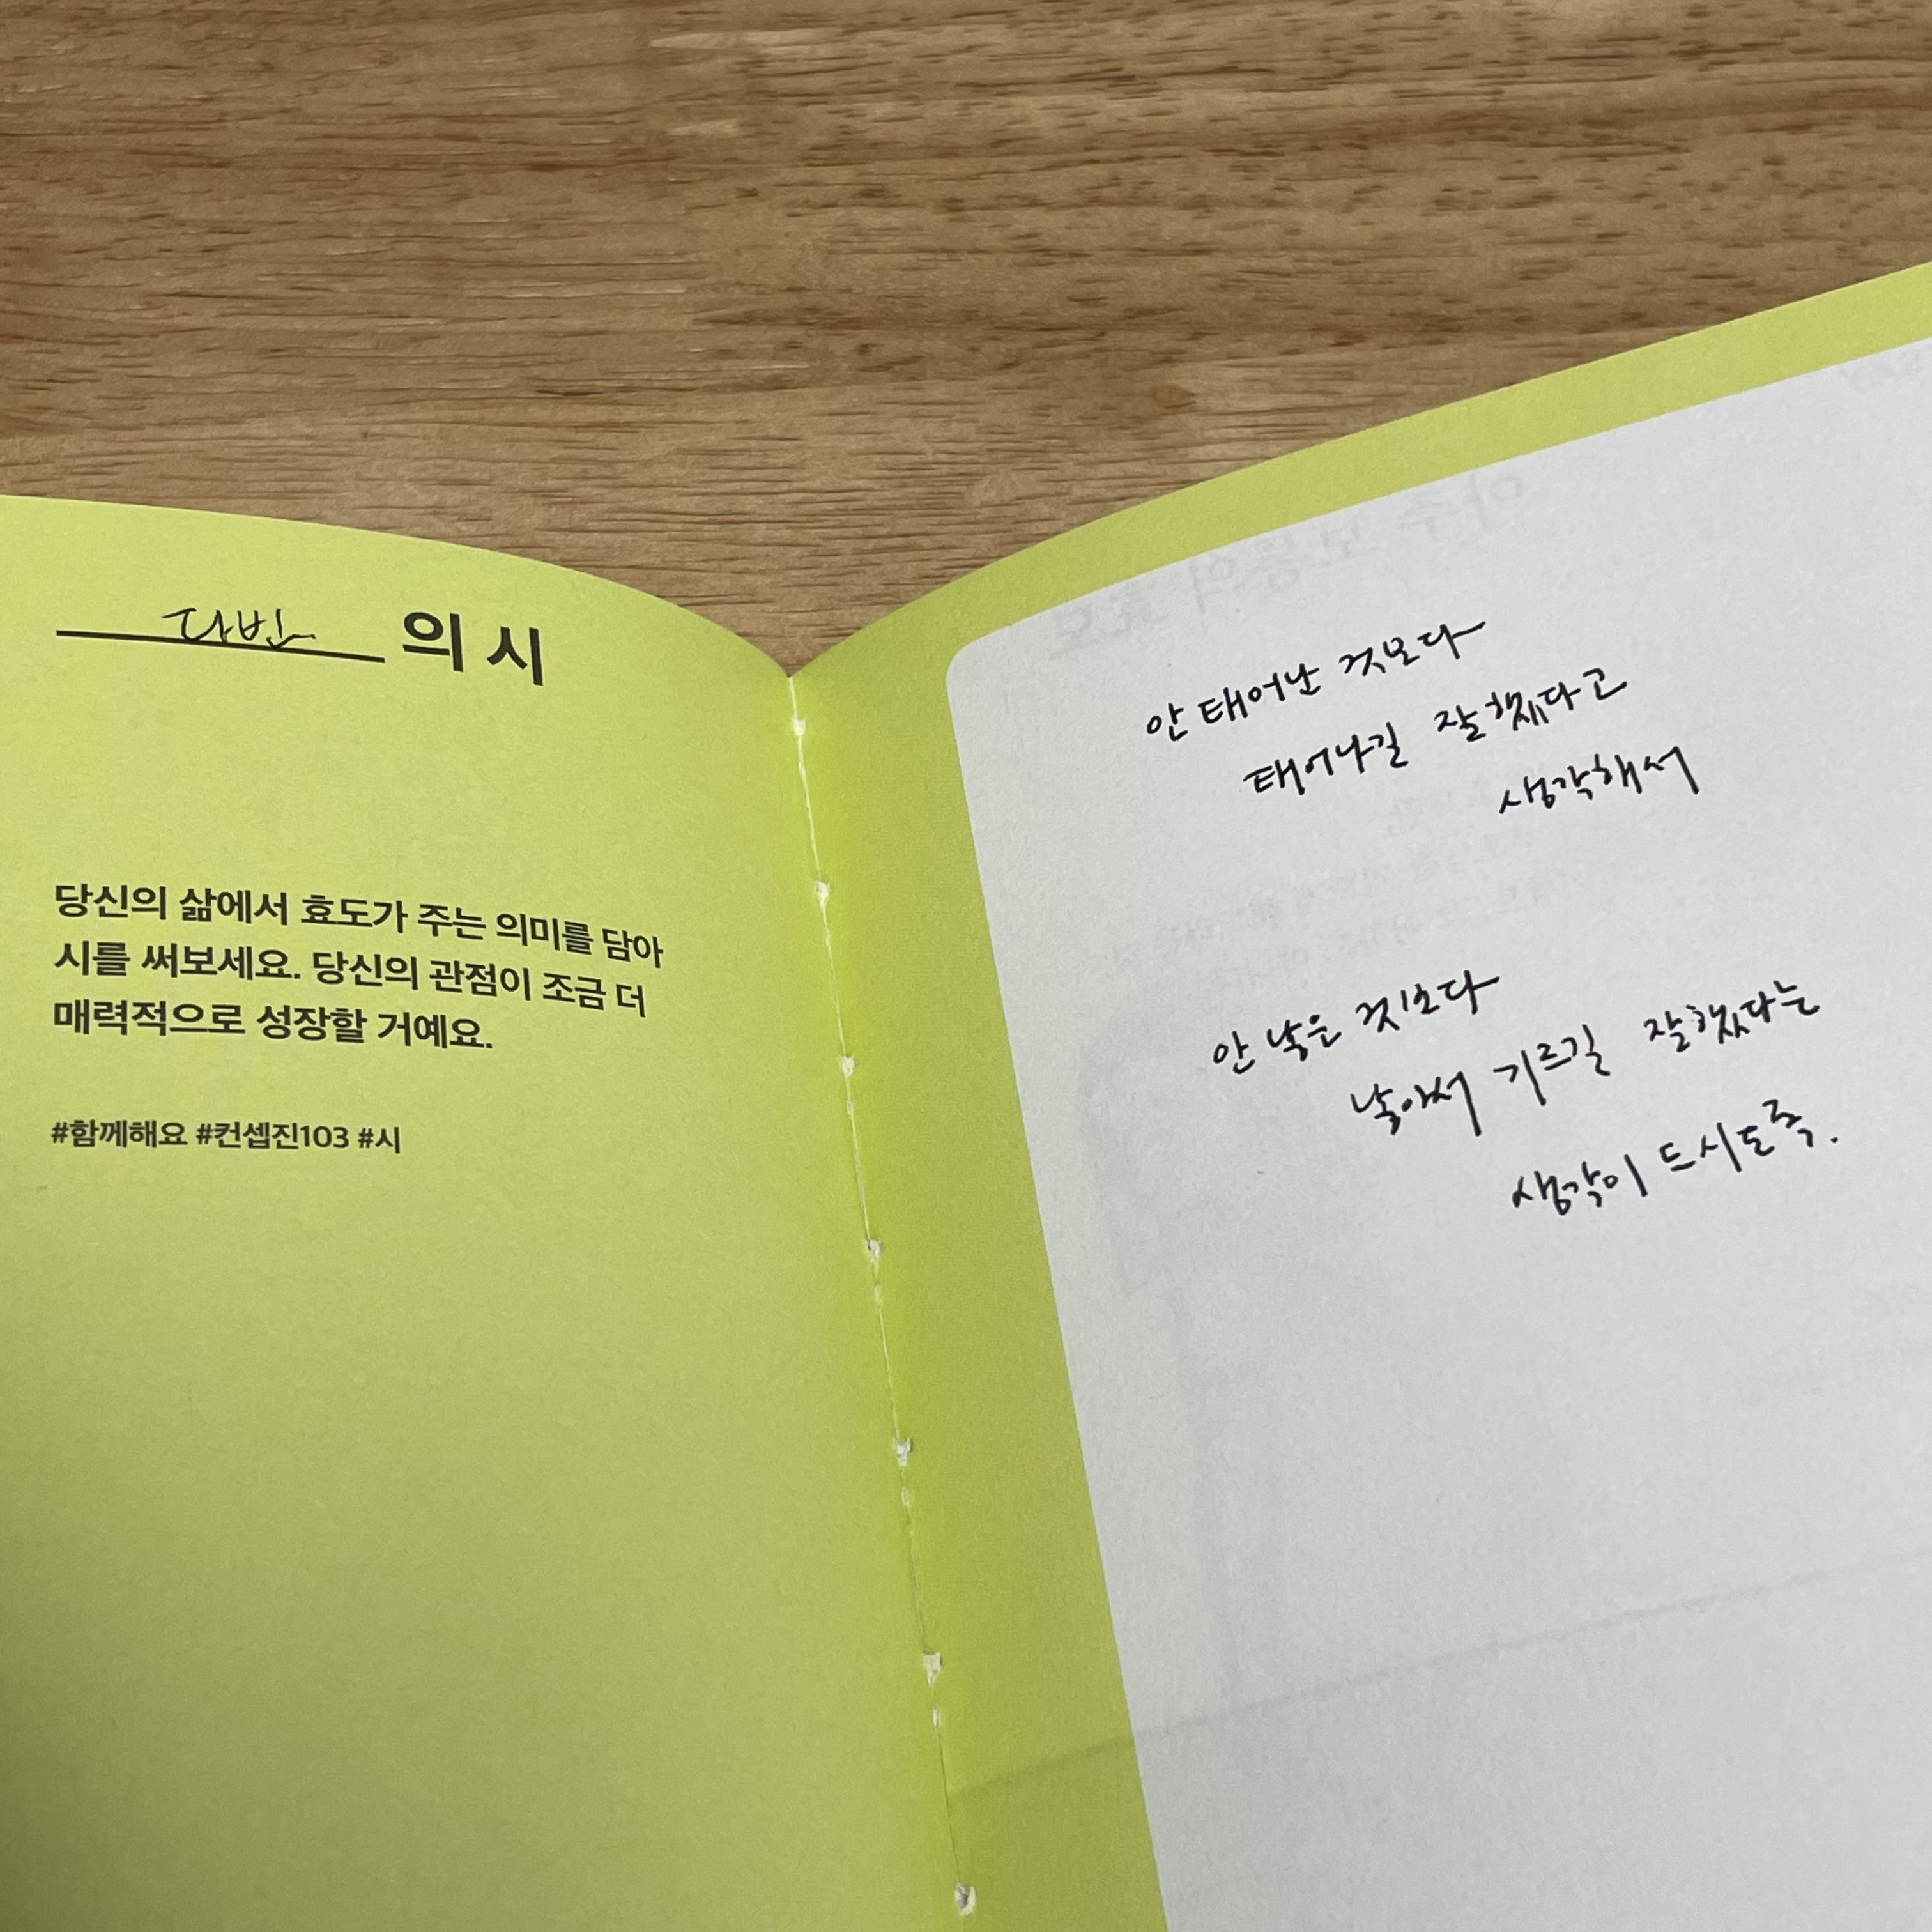 다빈 의 시
당신의 삶에서 효도가 주는 의미를 담아
시를 써보세요. 당신의 관점이 조금 더
매력적으로 성장할 거예요.
#함께해요 #컨셉진103 #시
안 태어난 것보다
태어나길 잘했다고
생각해서
안 낳은 것보다
낳아서 기르길 잘했다는
생각이 드시도록.